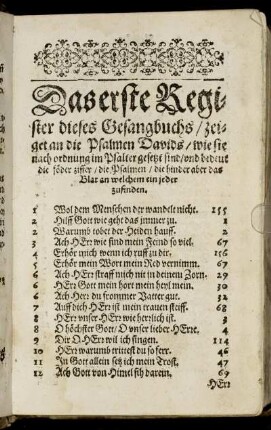 Das erste Regi-
ster dieses Gesangbuchs / zei-
get an die Psalmen Davids / wie sie
nach ordnung im Psalter gesetzt sind / und bedeut
die föder ziffer / die Psalmen / die hinder aber das
Blat an welchem ein jeder
zufinden.
1 Wol dem Menschen der wandelt nicht. 155
2 Hilff Gott wie geht das immer zu. 1
2 Warumb tobet der Heiden hauff. 2
3 Ach HErr wie sind mein Feind so viel. 67
4 Erhör mich wenn ich ruff zu dir. 156
5 Erhör mein Wort mein Red vernimm. 67
6 Ach HErr straff mich nit in deinem Zorn. 29
6 HErr Gott mein hort mein heyl mein. 30
6 Ach Herr du frommer Vatter gut. 32
7 Auff dich HErr ist mein trauen steiff. 68
8 HErr unser HErr wie herrlich ist. 3
8 O höchster Gott / O unser lieber HErre. 4
9 Dir O HErr wil ich singen. 114
10 HErr warumb trittest du so ferr. 46
11 In Gott allein setz ich mein Trost. 47
12 Ach Gott von Himel sih darein. 69
HErr